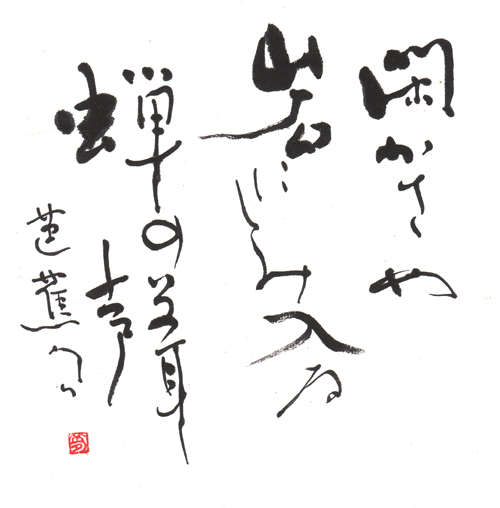 閑かさや
岩にしみ入る
蝉の聲
芭蕉句